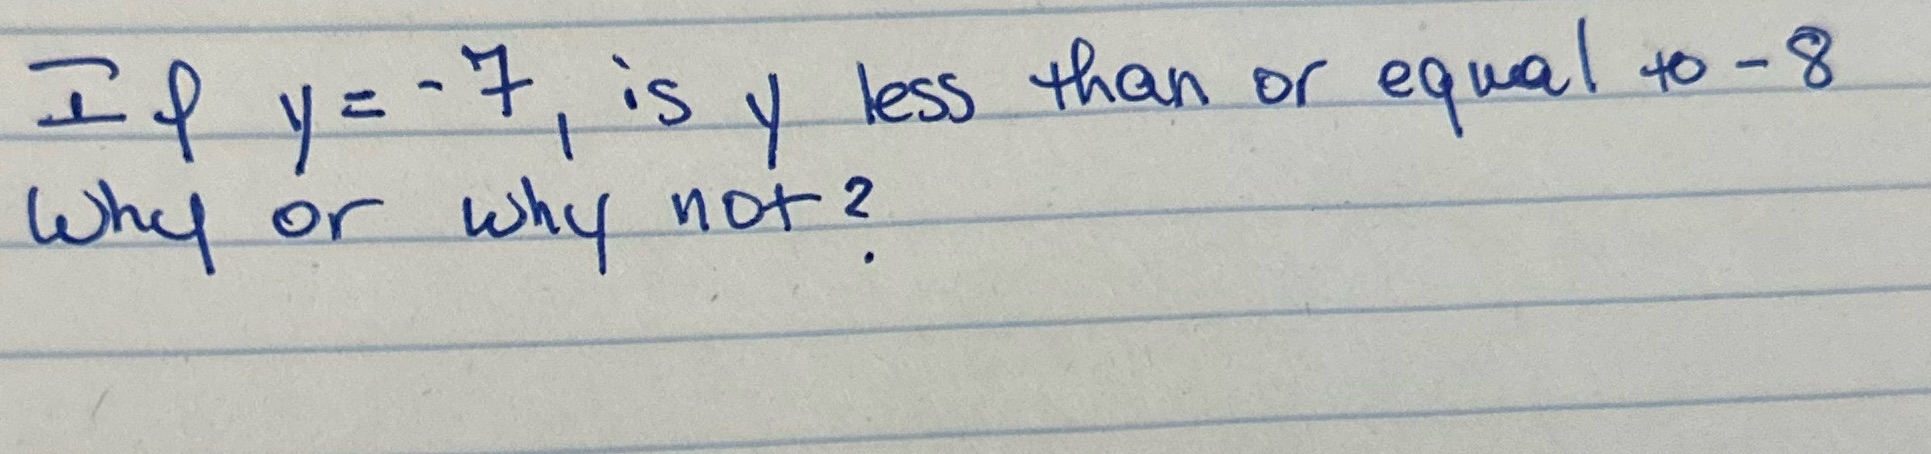 If y = -7, is y less than or equal to -8
Why or why not?